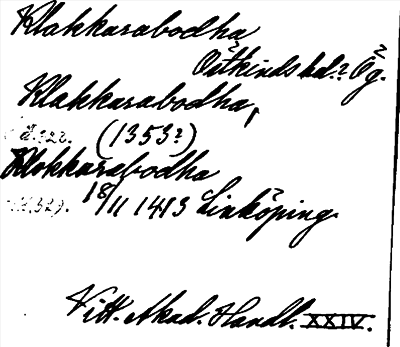 Klakkarabodha
?            ?
Östkinds hd.? Ög.
Klakkarabodha,
(1353?)
Klokkarabodha
18/11 1413 Linköping.
Vitt. Akad. Handl. XXIV.